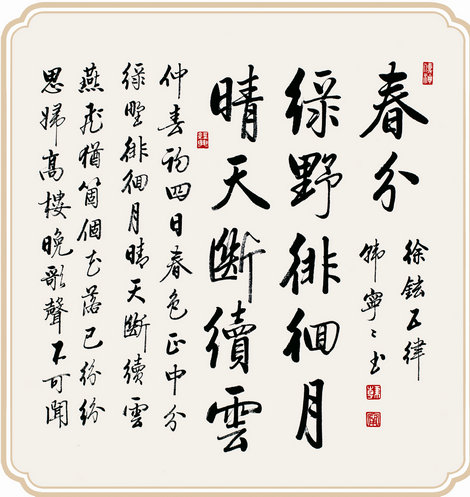 春分
徐鉉五律
韩寧〻书
綠野徘徊月
晴天斷續雲
仲春初四日春色正中分
綠野徘徊月晴天斷續雲
燕飛猶箇個花落已紛紛
思婦高樓晚歌聲不可聞